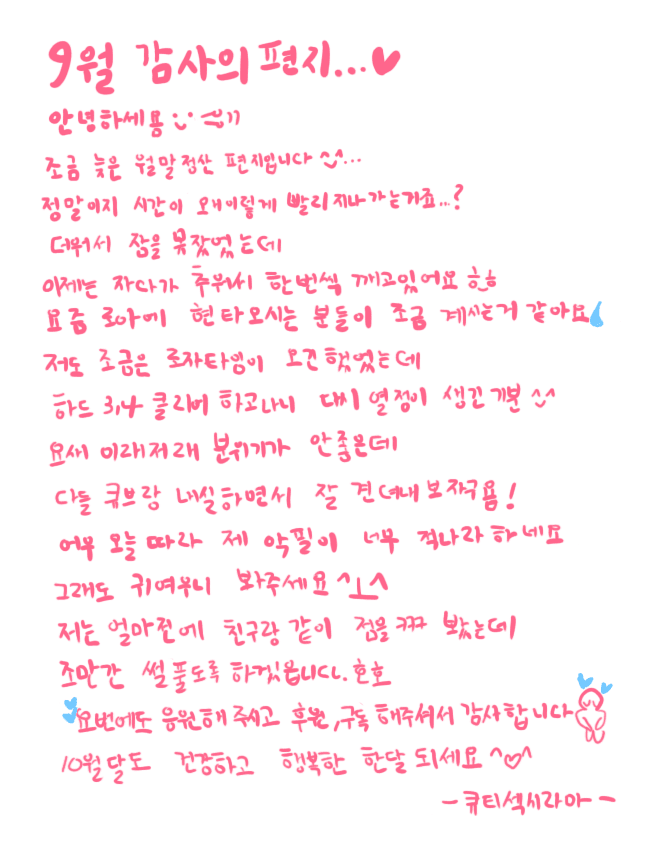 9월 감사의 편지...♥
안녕하세용 :)
조금 늦은 월말정산 편지입니다 ^^...
정말이지 시간이 왜이렇게 빨리 지나가는거죠...?
더워서 잠을 못잤었는데
이제는 자다가 추워서 한번씩 깨고있어요 ㅎㅎ
요즘 로아에 현타오시는 분들이 조금 계시는거 같아요
저도 조금은 로자타임이 오긴했었는데
하드 3,4 클리어 하고나니 다시 열정이 생긴 기분 ^^
요새 이래저래 분위기가 안좋은데
다들 큐브랑 내실하면서 잘 견뎌내보자구욤!
어우 오늘따라 제 악필이 너무 적나라하네요
그래도 귀여우니 봐주세요 ^⊥^
저는 얼마전에 친구랑 같이 점을 봤는데
조만간 썰 풀도록 하겠읍니다. 흐흐
요번에도 응원해 주시고 후원,구독 해주셔서 감사합니다
10월달도 건강하고 행복한 한달 되세요 ^♡^
- 큐티섹시라아 -